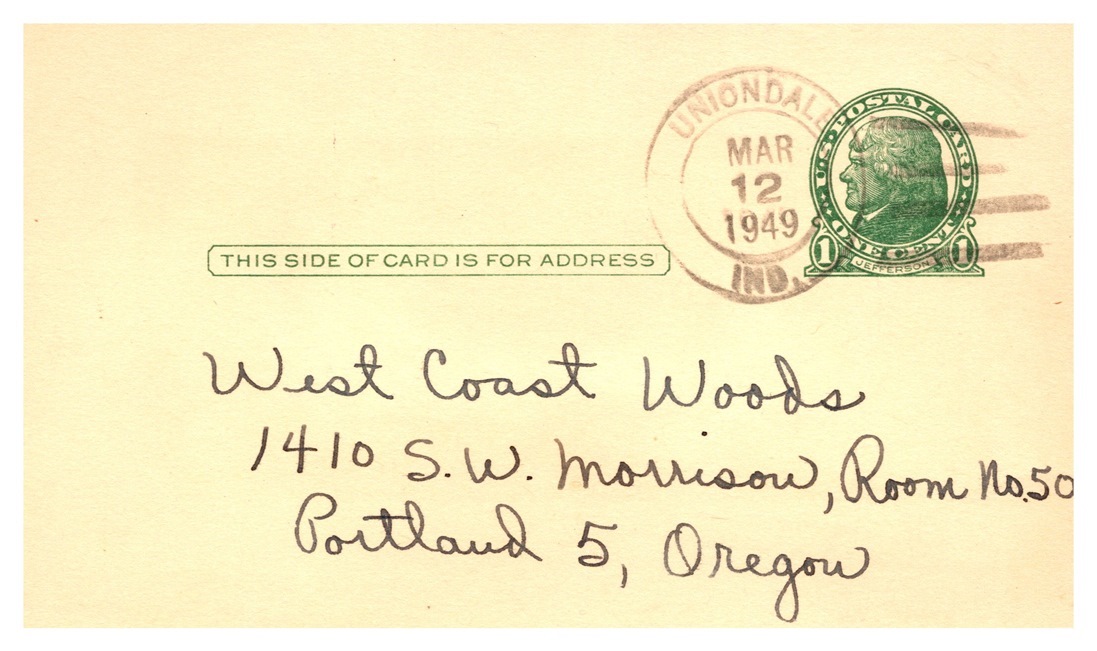 UNIONDALE
MAR
12
1949
IND.
U.S. POSTAL CARD
ONE CENT
1 JEFFERSON 1
THIS SIDE OF CARD IS FOR ADDRESS
West Coast Woods
1410 S.W. Morrison, Room No. 50
Portland 5, Oregon